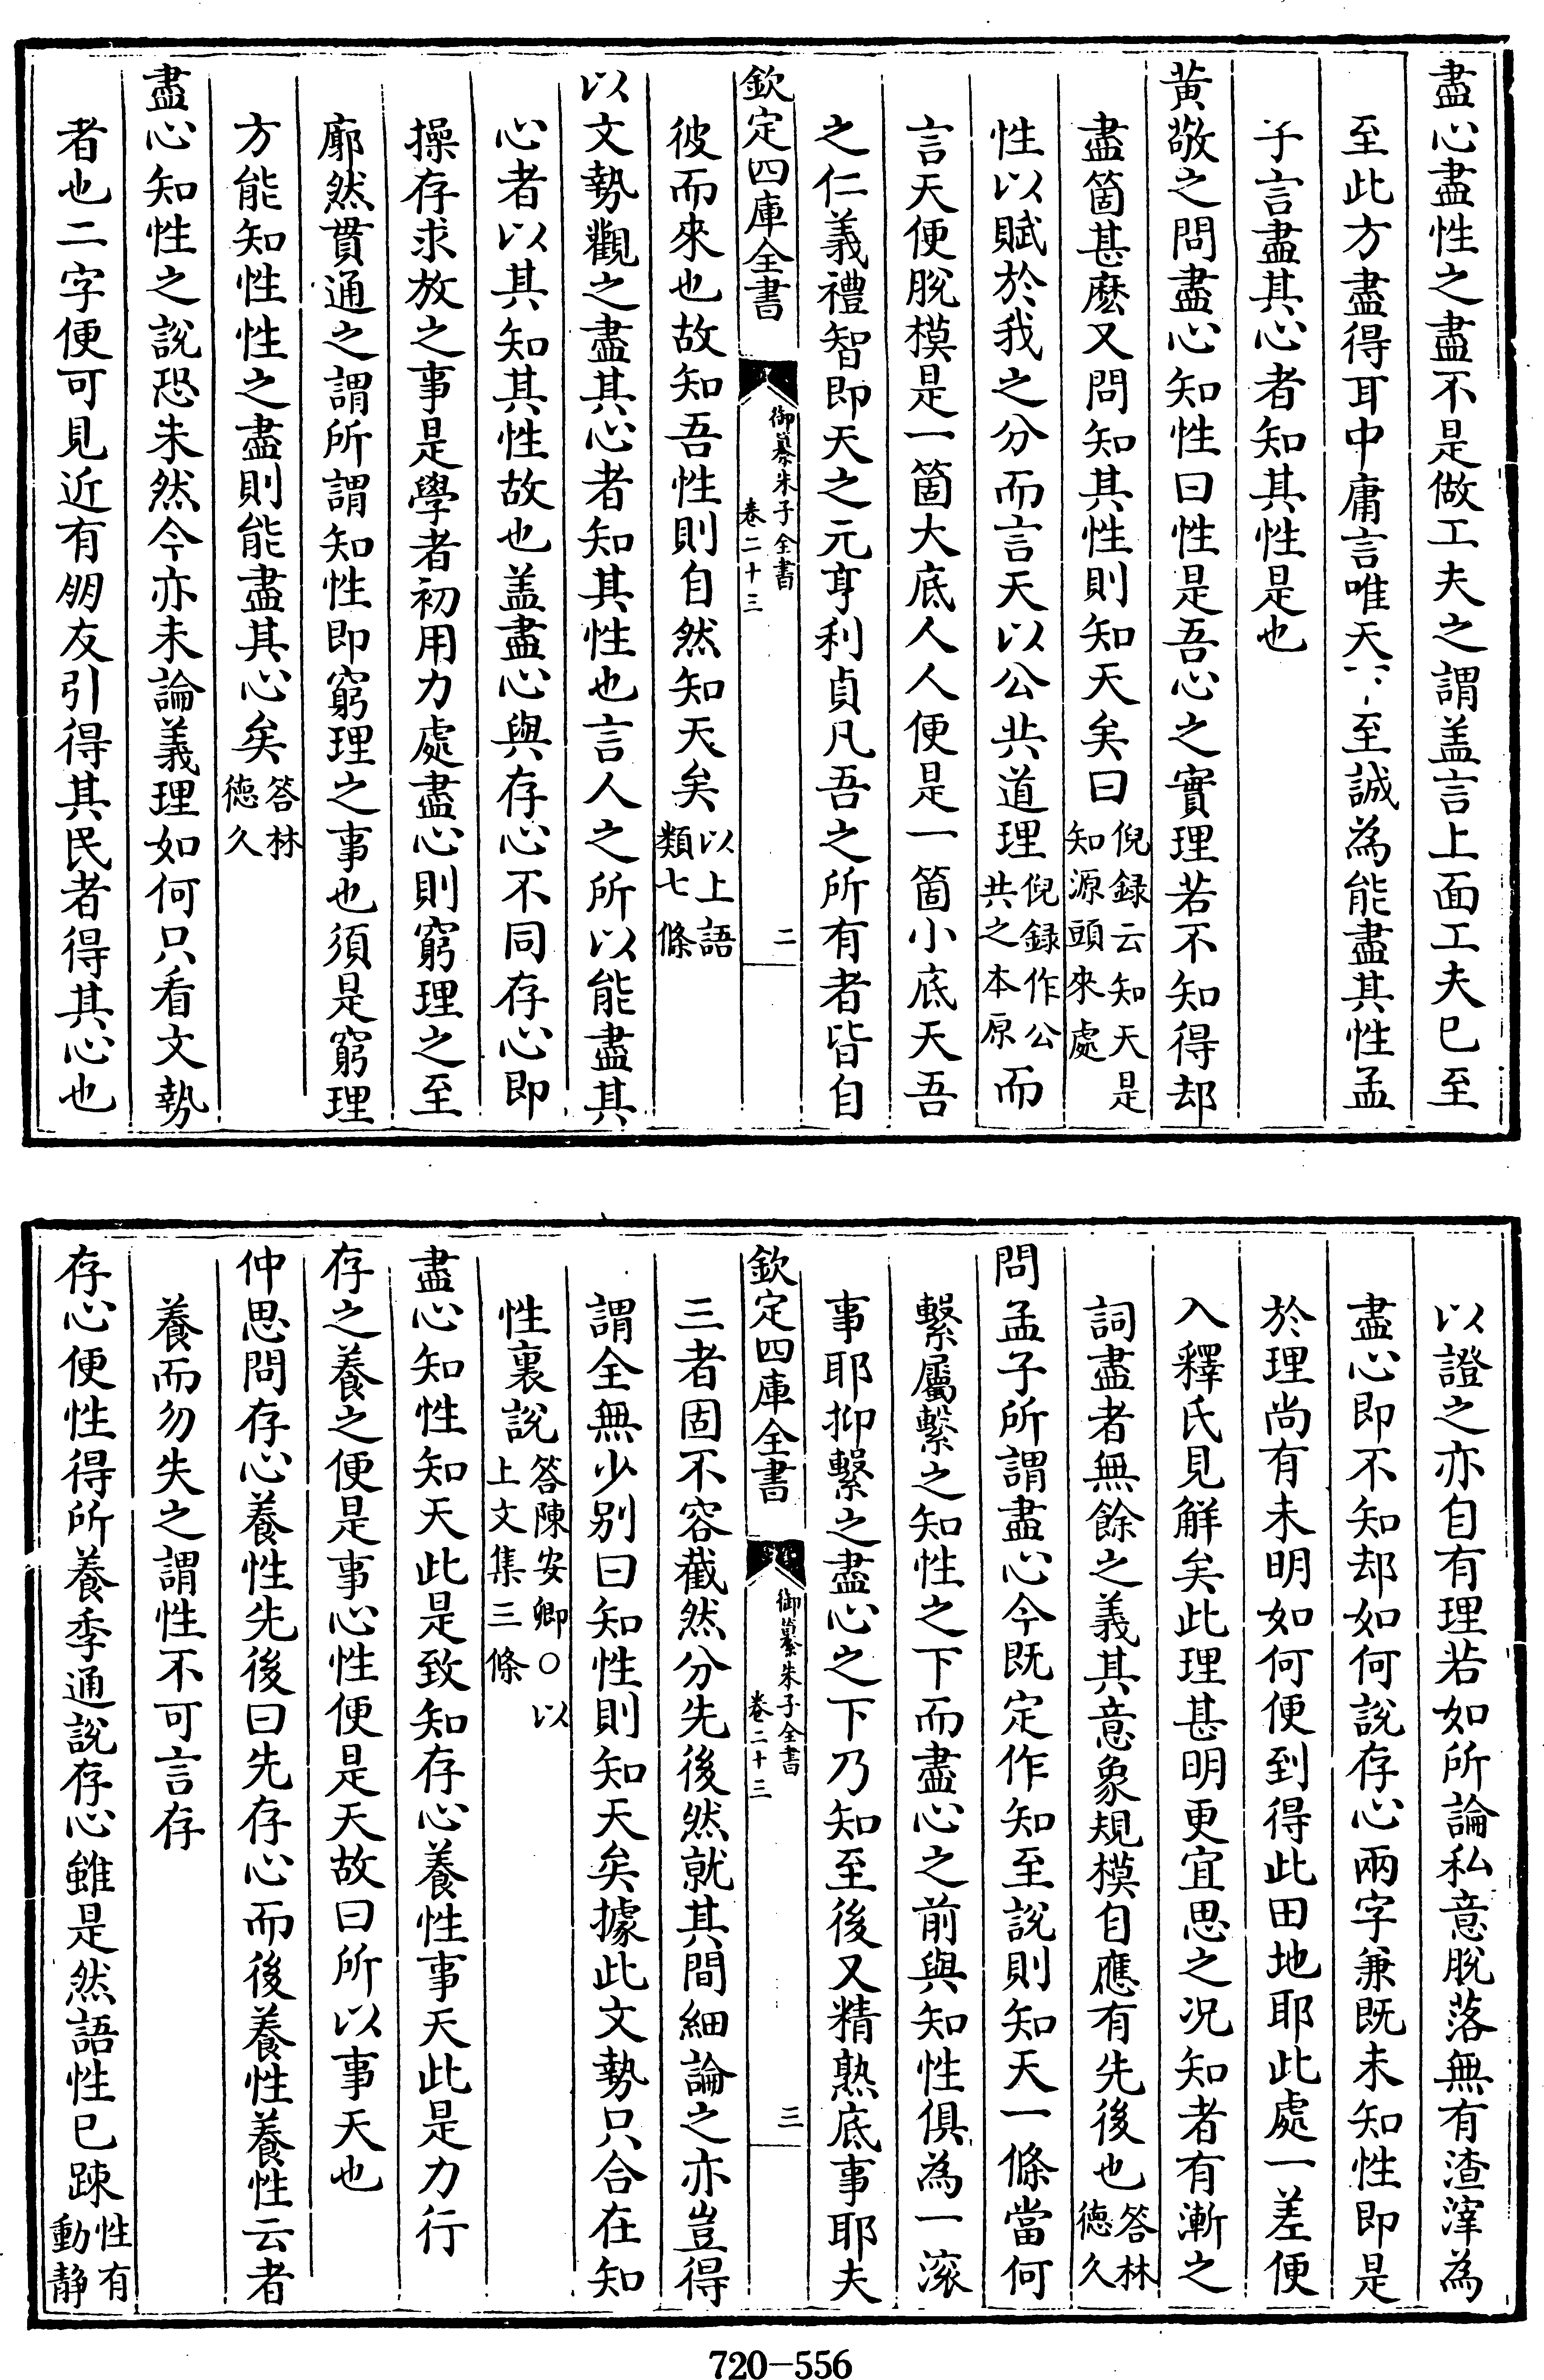 盡心盡性之盡不是做工夫之謂盖言上面工夫已至
至此方盡得耳中庸言唯天下至誠為能盡其性孟
子言盡其心者知其性是也
黃敬之問盡心知性曰性是吾心之實理若不知得却
盡箇甚麽又問知其性則知天矣曰倪録云知天是知源頭來處
性以賦於我之分而言天以公共道理倪録作公共之本原而
言天便脫模是一箇大底人人便是一箇小底天吾
之仁義禮智即天之元亨利貞凡吾之所有者皆自
欽定四庫全書 御纂朱子全書 卷二十三 二
彼而來也故知吾性則自然知天矣以上語類七條
以文勢觀之盡其心者知其性也言人之所以能盡其
心者以其知其性故也盖盡心與存心不同存心即
操存求放之事是學者初用力處盡心則窮理之至
廓然貫通之謂所謂知性即窮理之事也須是窮理
方能知性性之盡則能盡其心矣答林徳久
盡心知性之說恐未然今亦未論義理如何只看文勢
者也二字便可見近有朋友引得其民者得其心也
以證之亦自有理若如所論私意脫落無有渣滓為
盡心即不知却如何說存心兩字兼既未知性即是
於理尚有未明如何便到得此田地耶此處一差便
入釋氏見解矣此理甚明更宜思之况知者有漸之
詞盡者無餘之義其意象規模自應有先後也答林徳久
問孟子所謂盡心今既定作知至說則知天一條當何
繫屬繫之知性之下而盡心之前與知性俱為一滚
事耶抑繫之盡心之下乃知至後又精熟底事耶夫
欽定四庫全書 御纂朱子全書 卷二十三 三
三者固不容截然分先後然就其間細論之亦豈得
謂全無少别曰知性則知天矣據此文勢只合在知
性裏說答陳安卿〇以上文集三條
盡心知性知天此是致知存心養性事天此是力行
存之養之便是事心性便是天故曰所以事天也
仲思問存心養性先後曰先存心而後養性養性云者
養而勿失之謂性不可言存
存心便性得所養季通說存心雖是然語性已踈性有動静
720-556